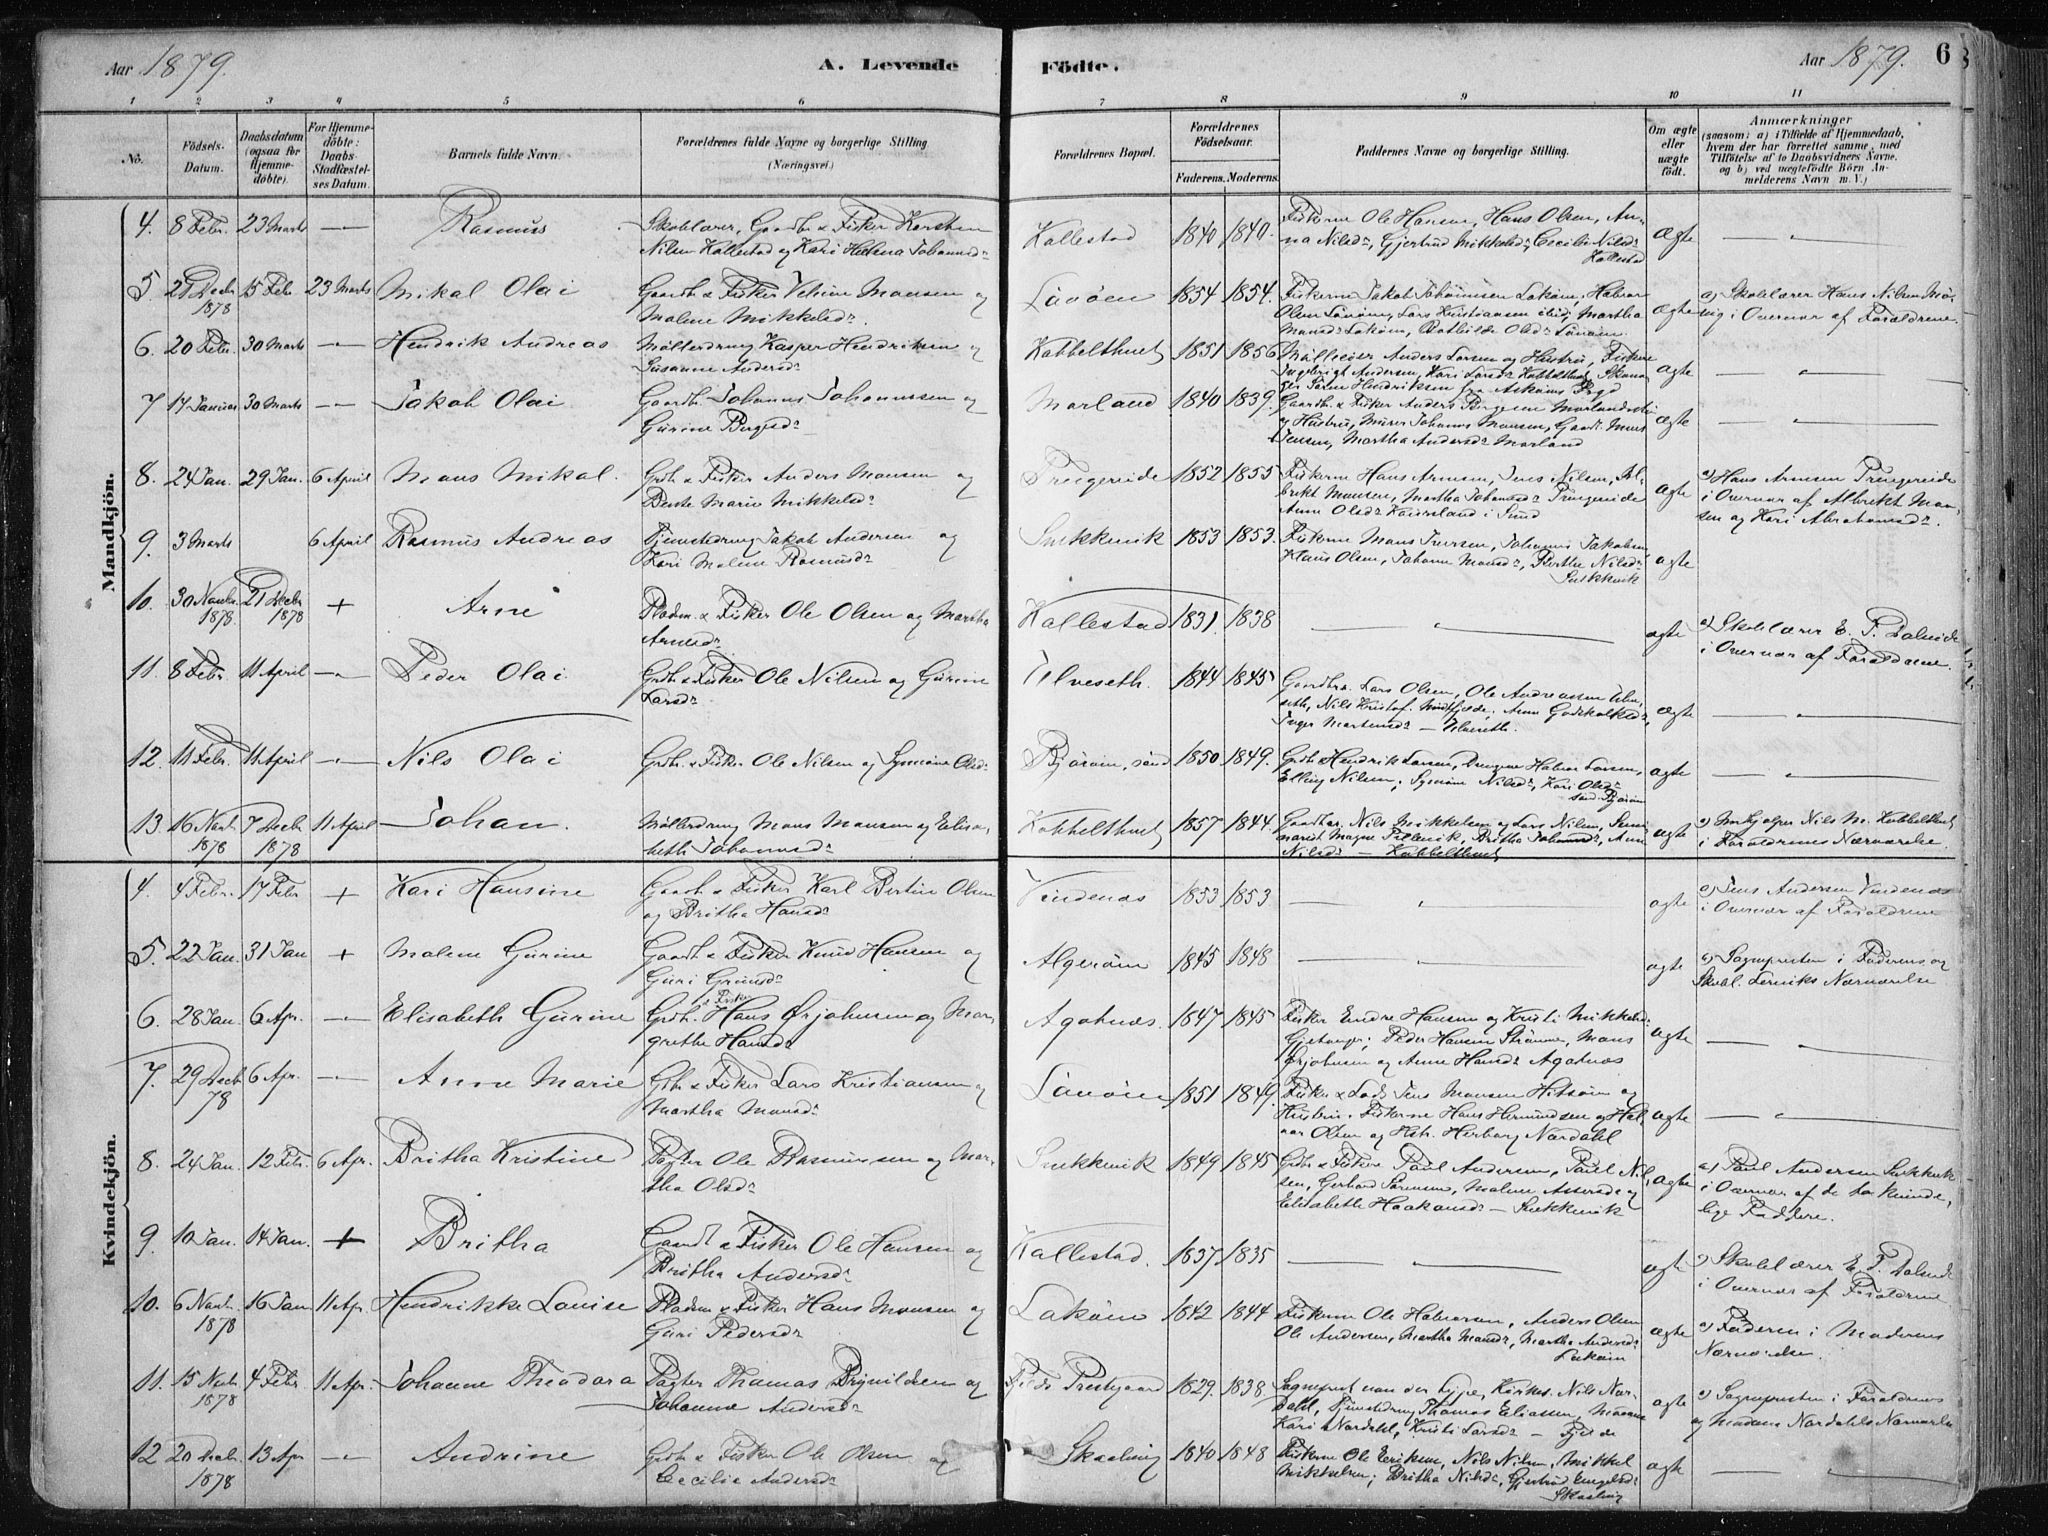 Aar 1879. A. Levende Födte. Aar 1879. 6
1 2 3 4 5 6 7 8 9 10 11
No. Födsels-Datum. Daabsdatum (ogsaa for Hjemmedöbte). For Hjemmedöbte: Daabs-Stadfæstelses Datum. Barnets fulde Navn. Forældrenes fulde Navne og borgerlige Stilling (Næringsvei). Forældrenes Bopæl. Forældrenes Födselsaar. Faderens. Moderens. Faddernes Navne og borgerlige Stilling. Om ægte eller uægte födt. Anmærkninger (saasom: a) i Tilfælde af Hjemmedaab, hvem der har forrettet samme, med Tilföielse af to Daabsvidners Navne, og b) ved uægtefödte Börn Anmelderens Navn m. V.)
Mandkjön.
4. 8 Febr. 23 Marts Rasmus Skolelærer, Gaardb. & Fisker Karsten Nilsen Kallestad og Kari Helena Johannesdr Kallestad 1840 1840. Fiskerne Ole Hansen, Hans Olsen, Anna Nilsdr, Gjertrud Mikkelsdr, Cecilie Nilsdr Kallestad ægte
5 21 Decbr 1878 15 Febr 23 Marts Mikal Olai Gaardb. & Fisker Mansen og Malene Mikkelsdr. 1854 1854. Fiskerne Jakob Johannesen Lakøen, Olsen Lars Kristiansen ibid, Martha Mansdr Lakøen, Olsdr ægte a) Skolelærer Hans Nilsen i Overvær af Forældrene.
6. 20 Febr. 30 Marts Hendrik Andreas Møllerdreng Kasper Hendriksen og Susanne Andersdr Kobbelthvet 1851 1856 Anders Larsen og Hustru, Fiskerne Andersen, Kari Larsdr Kobbelthvet, Søren Hendriksen fra Askøens Prgd ægte
7 14 Januar 30 Marts Jakob Olai Gaardb. Johannes Johannessen og Gurine Borgesdr Morland 1840 1839. Gaardb. & Fisker Anders Borgesen og Hustru, Murer Johannes Mansen, Gaardb. Mons Jensen, Martha Andersdr Morland ægte
8. 24 Jan. 29 Jan. 6 April Mans Mikal. Grdb. & Fisker Anders Mansen og Bente Marie Mikkelsdr 1852 1855 Fiskerne Hans Arnesen, Jens Nilsen, Albrikt Mansen, Martha Johansdr Anne Olsdr i Sund ægte a) Hans Arnesen i Overvær af Albrikt Mansen og Kari Abrahamsdr.
9. 3 Marts 6 April Rasmus Andreas Tjenestedreng Jakob Andersen og Kari Malene Rasmusdr Snekkevik 1853 1853. Fiskerne Mans Iversen, Johannes Jakobsen, Klaus Olsen, Johanne Mansdr, Berthe Nilsdr Snekkevik ægte
10. 30 Novbr 1878. 21 Decbr 1878 + Arne Pladsm. & Fisker Ole Olsen og Martha Arnesdr Kallestad 1831. 1838 ægte a) Skolelærer E. T. Dalseide i Overvær af Forældrene.
11. 8 Febr 11 April Peder Olai Grdb. & Fisker Ole Nilsen og Gurine Larsdr Ulveseth. 1844 1845 Gaardbr. Lars Olsen, Ole Andreassen Ulveseth, Nils Kristof. Anne Godskalksdr, Inger Martensdr — Ulveseth. ægte
12. 11 Febr. 11 April Nils Olai Grdb. & Fisker Ole Nilsen og Symeone Olsdr Bjørøen, sønd 1850 1849. Grdb. Hendrik Larsen, Drengene Halvor Larsen, Elling Nilsen; Symøne Nilsdr, Kari Olsdr sønd Bjørøen ægte
13. 16 Novbr 1878 7 Decbr 1878 11 April Johan. Møllerdreng Mans Mansen og Elisabeth Johannesdr Kobbelthvet 1857 1844. Gaardbr. Nils Mikkelsen og Lars Nilsen, Magne Britha Johannesdr, Anne Nilsdr — Kobbelthvet ægte a) Nils M. Kobbelthvet i Forældrenes Nærværelse.
Kvindekjön.
4. 4 Febr. 17 Febr + Kari Hansine Gaardb & Fisker Karl Bertin Olsen og Britha Hansdr Vindenæs 1853 1853 ægte a) Jens Andersen Vindenæs i Overvær af Forældrene
5. 22 Jan. 31 Jan + Malene Gurine Gaardb & Fisker Knud Hansen og Guri Algerøen 1845 1848 ægte a) Sognepresten i Faderens og Skoel. Lerviks Nærværelse
6. 28 Jan. 6 Apr. Elisabeth Gurine Grdb. & Fisker Hans Ørjohnsen og Margrethe Hansdr Agotnæs. 1847 1845 Fisker Endre Hansen og Kristi Mikkelsdr Peder Hansen Mans Ørjohnsen og Anne Hansdr Agotnæs ægte
7. 29 Decb 78 6 Apr. Anne Marie Grdb & Fisker Lars Kristiansen og Martha Mansdr 1851 1849. Fisker & Jens Mansen og Hustru. Fiskerne Hans Hermundsen og Halvor Olsen og Hstr. Herborg Nordahl ægte
8. 24 Jan. 12 Febr. 6 Apr. Britha Kristine Pagter Ole Rasmussen og Martha Olsdr Snekkevik 1849 1845 Grdb & Fisker Paul Andersen, Paul Nilsen, Gerhard Sørensen, Malene Assersdr og Elisabeth Haakonsdr — Snekkevik ægte a) Paul Andersen Snekkevik i Overvær af de to kvindelige Faddere.
9. 10 Jan. 14 Jan. + Britha Gaardb & Fisker Ole Hansen og Britha Andersdr Kallestad. 1837 1835 ægte a) Skolelærer E. T. Dalseide i Overvær af Forældrene
10. 6 Novbr 1878 16 Jan 11 Apr. Hendrikke Louise Pladsm & Fisker Hans Monsen og Guri Pedersdr Lakøen 1842 1844 Fiskerne Ole Halvorsen, Anders Olsen Ole Andersen, Martha Mansdr, Martha Andersdr Lakøen ægte a) Faderen i Moderens Nærværelse.
11. 15 Novb 1878 4 Febr 11 Apr. Johanne Theodora Pagter Thomas Brynildsen og Johanne Andersdr Fjelds Prestgaard 1829. 1838. Sognepr. van der Lippe, Kirkes. Nils Nordahl, Tjenestedreng Thomas Eliassen, Madame Kari Nordahl, Kristi Larsdr — Fjelde ægte a) Sognepresten i Forældrenes og Madame Nordahls Nærværelse
12 20 Decb. 1878 13 Apr Andrine Grdb & Fisker Ole Olsen og Cecilia Andersdr Skaaling 1840 1848 Fiskerne Ole Eriksen, Nils Nilsen, Mikkel Mikkelsen; Britha Nilsdr, Gjertrud Engelsdr Skaaling ægte